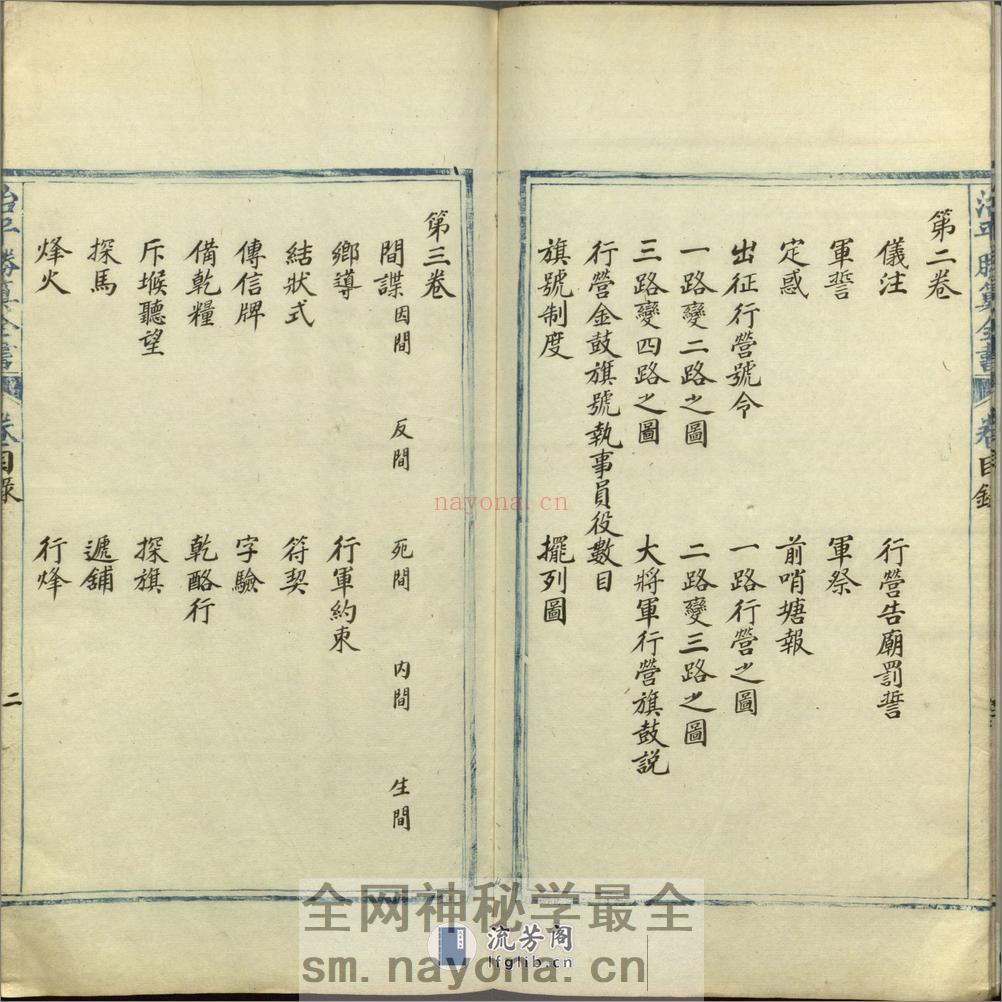 治平勝算全書 卷 目錄
第二卷
儀注 行營告廟罰誓
軍誓 軍祭
定惑 前哨塘報
出征行營號令 一路行營之圖
一路變二路之圖 二路變三路之圖
三路變四路之圖 大將軍行營旗鼓説
行營金鼓旗號執事員役數目
旗號制度 擺列圖
第三卷
間諜 因間 反間 死間 内間 生間
鄉導 行軍約束
結狀式 符契
傳信牌 字驗
備乾糧 乾酪行
斥堠聽望 探旗
探馬 遞舖
烽火 行烽
治平勝算全書 卷 目錄 二
nayona.cn
全网神秘学最全
流芳阁
lfglib.cn
sm.nayona.cn